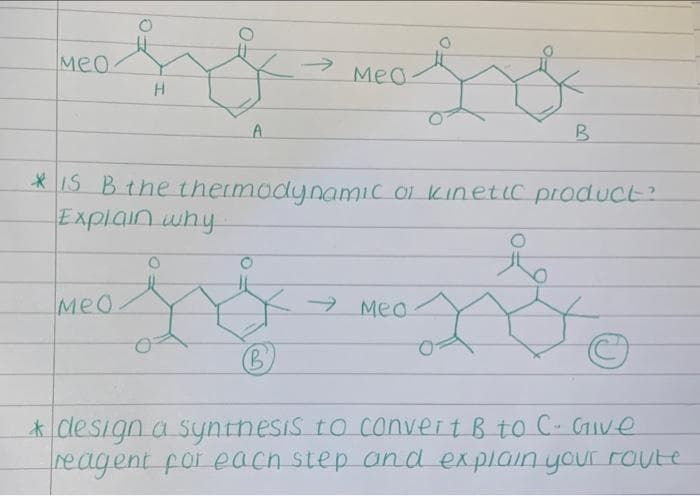 O O
MeO → MeO O O
H O
A B
* is B the thermodynamic or kinetic product?
Explain why
O O O
O
MeO → MeO
O B O C
* design a synthesis to convert B to C. Give
reagent for each step and explain your route